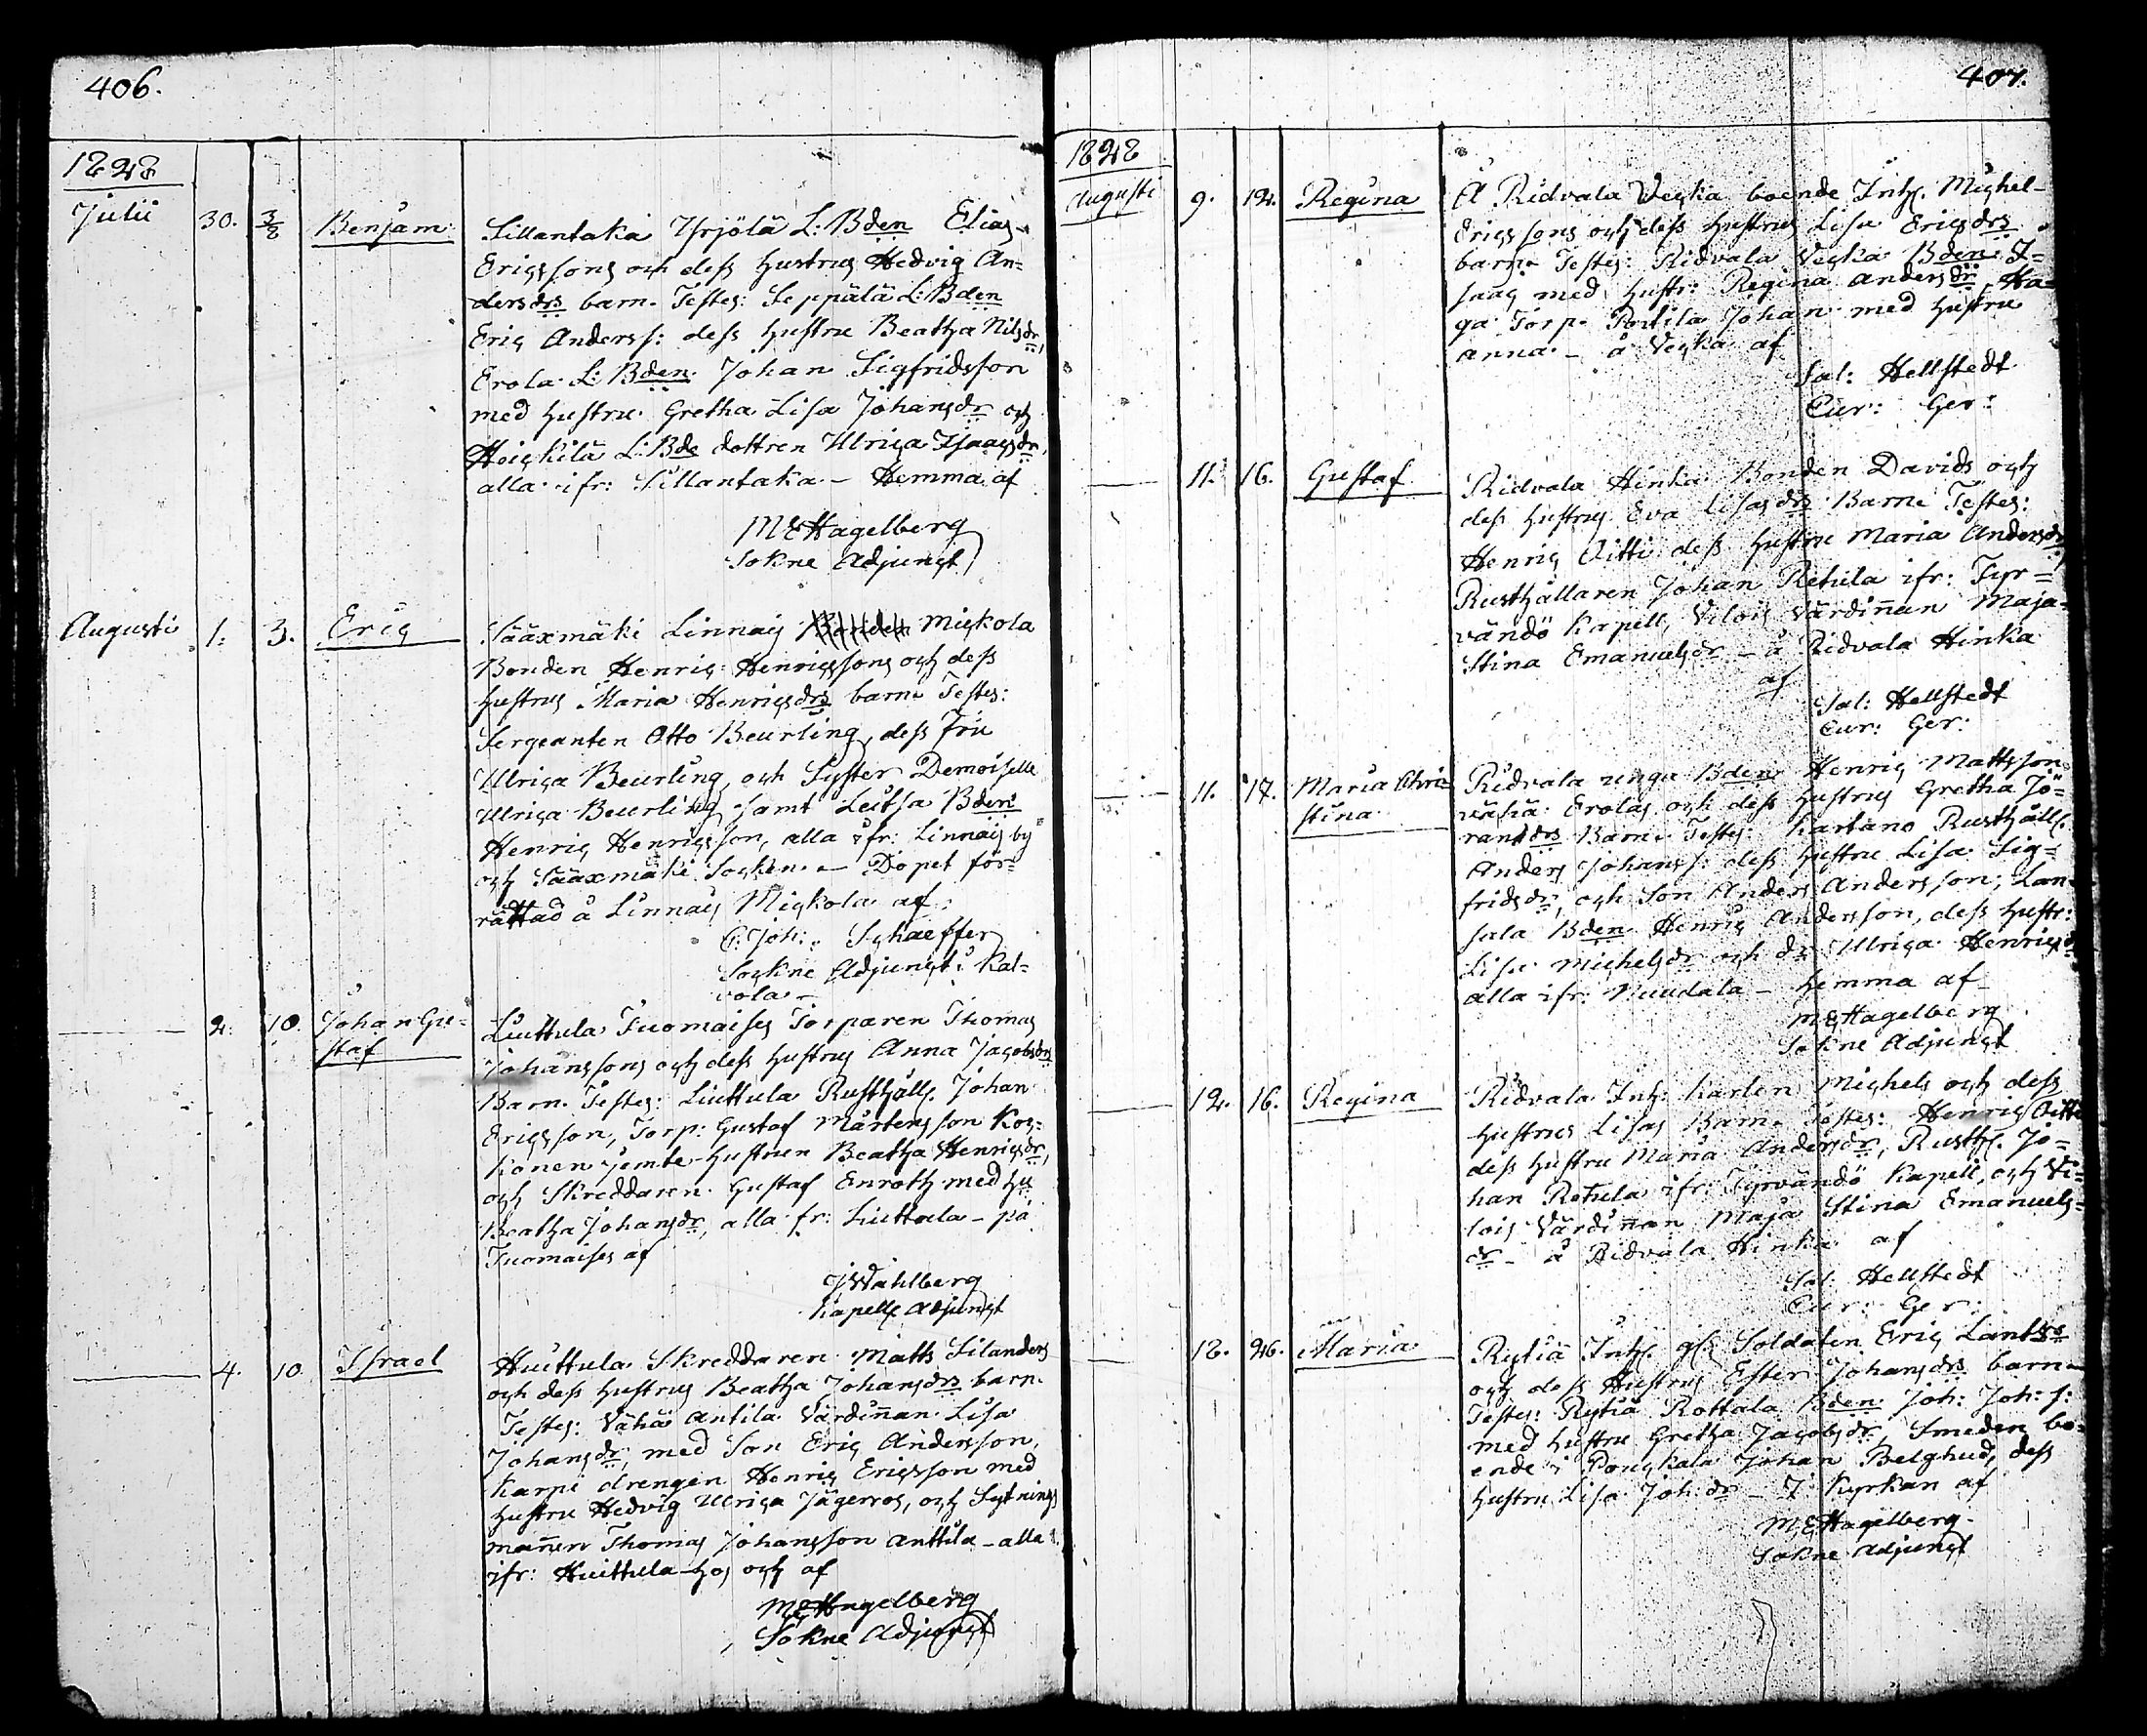 406.
1828
Julii 30. 3/8 Benjam: Sillantaka Yrjölä L: Bden Elias
Ericssons och dess hustrus Hedvig An=
dersdrs barn. Testes: Seppälä L: Bden
Eric Anderss: dess hustru Beatha Nilsdr,
Erola L: Bden Johan Sigfridsson
med hustru Gretha Lisa Johansdr och
Hoickila L: Bde dottren Ulrica Isaacsdr,
alla ifr: Sillantaka - Hemma af
MEHagelberg
Sokne Adjunct
Augusti 1. 3. Eric Sääxmäki Linnais Mickola
Bonden Henric Henricssons och dess
hustrus Maria Henricsdrs barn Testes:
Sergeanten Otto Beurling, dess Fru
Ulrica Beurling, och Syster Demoiselle
Ulrica Beurling, samt Leitsa Bden
Henric Henricsson, alla ifr: Linnais by
och Sääxmäki Socken. - Dopet för=
rättad å Linnais Mickola af
Joh: Schaeffer
Sockne Adjunct i Kal=
vola -
2. 10. Johan Gu=
staf
Liuttula Tuomaises Torparen Thomas
Johanssons och dess hustrus Anna Jacobsdrs
Barn. Testes: Liuttula Rusthåll. Johan
Ericsson, Torp: Gustaf Mårtensson Kos=
konen jemte hustrun Beatha Henricsdr,
och Skreddaren Gustaf Enroth med hu
Beatha Johansdr, alla fr: Liuttula - på
Tuomaises af
JWahlberg
Kapells Adjunct
4. 10. Israel Huittula Skreddaren Matts Silanders
och dess hustrus Beatha Johansdrs barn.
Testes: Vähä Antila Värdinnan Lisa
Johansdr, med Son Eric Andersson,
Karpi drengen Henric Ericsson med
hustru Hedvig Ulrica Jägerros, och Sytnings
mannen Thomas Johansson Anttila - alla
ifr: Huittula hos och af
MEHagelberg
Sokne Adjunct
407.
1828
Augusti 9. 12. Regina Å Ridvala Vecka boende Inh. Michel
Ericssons och dess hustrus Lisa Ericsdrs
barn Testes: Ridvala Vecka Bden I=
saac med hustr: Regina Andersdr Ha=
ga Torp. Porttila Johan med hustru
Anna. - å Vecka af
Sal: Hellstedt
Cur: Ger:
11. 16. Gustaf Ridvala Hinka Bonden Davids och
dess hustrus Eva Lisas drs Barn Testes:
Henric Oitti dess hustru Maria Andersdr,
Rusthållaren Johan Retula ifr: Tyr=
vändö Kapell, Vilois Värdinnan Maja
Stina Emanuelsdr - å Ridvala Hinka
af
Sal: Hellstedt
Cur: Ger:
11. 17. Maria Chri=
stina
Ridvala unga Bden Henric Mattsson
vähä Erolas och dess hustrus Gretha Jö=
randrs Barn. Testes: Kartano Rusthåll.
Anders Johanss: dess hustru Lisa Sig=
fridsdr, och Son Anders Andersson, Lan=
sula Bden Henric Andersson, dess hustr:
Lisa Michelsdr och dr Ulrica Henricsdr
alla ifr: Nuudala - hemma af
MEHagelberg
Sokne Adjunct
12. 16. Regina Ridvala Inh: Karlen Michels och dess
hustrus Lisas Barn. Testes: Henric Oitti
dess hustru Maria Andersdr, Rusth. Jo=
han Retula ifr: Tyrvändö Kapell, och Vi=
lois Värdinnan Maja Stina Emanuels=
dr - å Ridvala Hinka af
Sal: Hellstedt
Cur: Ger:
12. 26. Maria Rytiä Inh. Soldaten Eric
och dess Hustrus Ester Johansdrs barn
Testes: Rytiä Rottala Bden Joh: Joh: s:
med hustru Gretha Jacobsdr, Smeden bo=
ende i Ponckala Johan Belghud, dess
hustru Lisa Joh: dr - I Kyrkan af
MEHagelberg
Sokne Adjunct